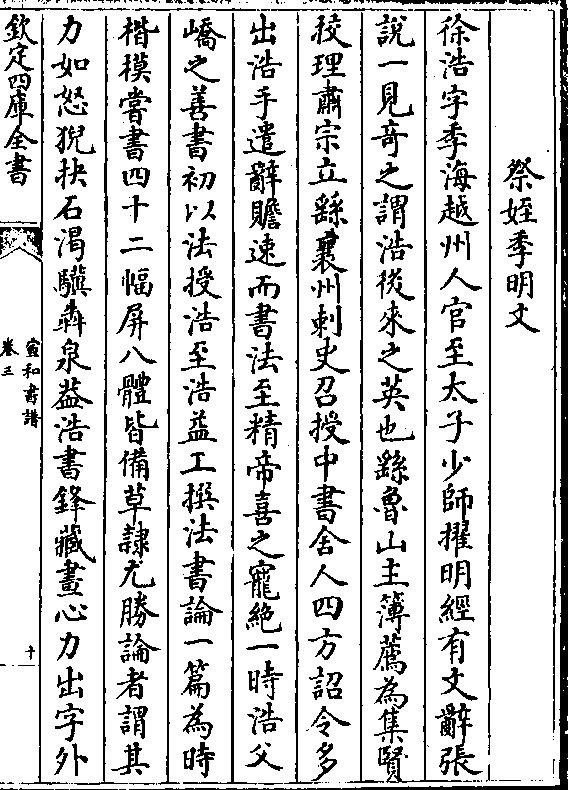 祭姪季明文
徐浩字季海越州人官至太子少師擢明經有文辭張
說一見竒之謂浩後來之英也繇魯山主簿薦為集賢
挍理肅宗立繇襄州刺史召授中書舍人四方詔令多
出浩手遣辭贍速而書法至精帝喜之寵絶一時浩父
嶠之善書初以法授浩至浩益工撰法書論一篇為時
楷模嘗書四十二幅屏八體皆備草隸尤勝論者謂其
力如怒猊抉石渴驥犇泉葢浩書鋒藏畫心力出字外
欽定四庫全書
宣和書譜
卷三
十